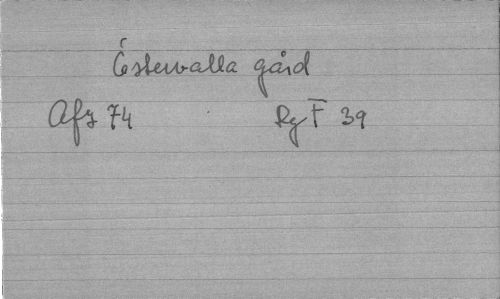 Östervalla gård
Afz 74 Rg F 39